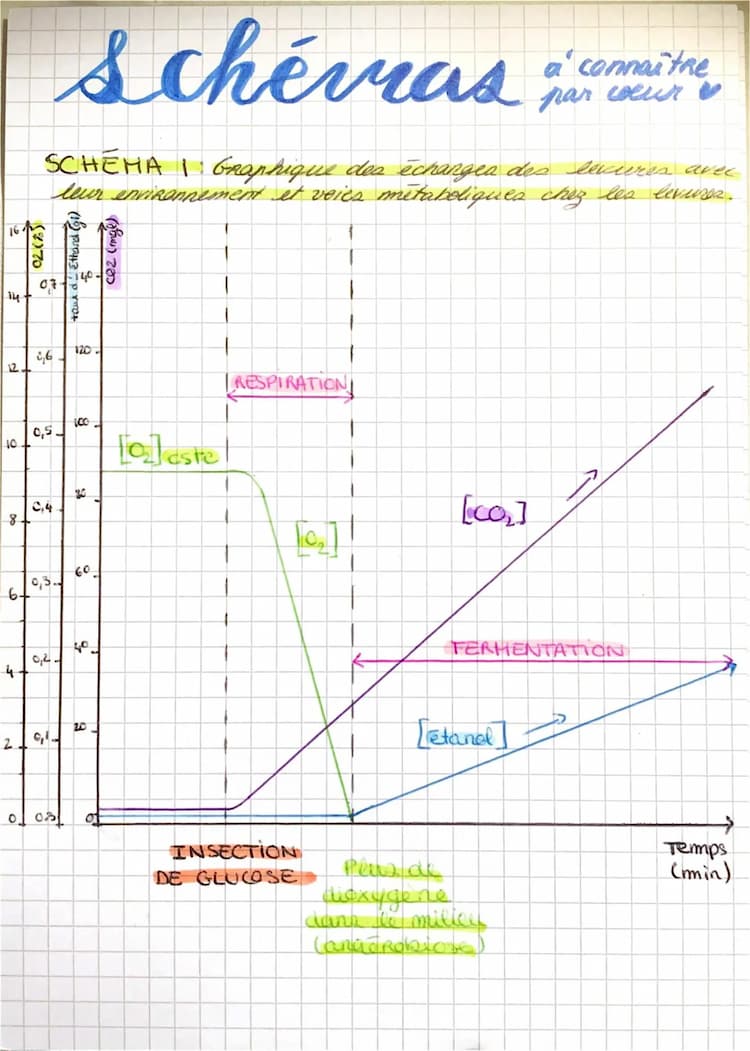 schémas
à connaître
par coeur
SCHÉMA 1 : Graphique des échanges des levures avec
leur environnement et voies métaboliques chez les levures.
O2(%)
taux d'Ethanol (g)
CO2 (mgl)
16
14
12
10
8
6
4
2
0
0,7
0,6
0,5
0,4
0,3
0,2
0,1
120
100
80
60
40
20
0
RESPIRATION
[O2] cste
[O2]
[CO2]
FERMENTATION
[étanol]
Temps
(min)
INSECTION
DE GLUCOSE
Plus de
dioxygène
dans le milieu
(anaérobiose)